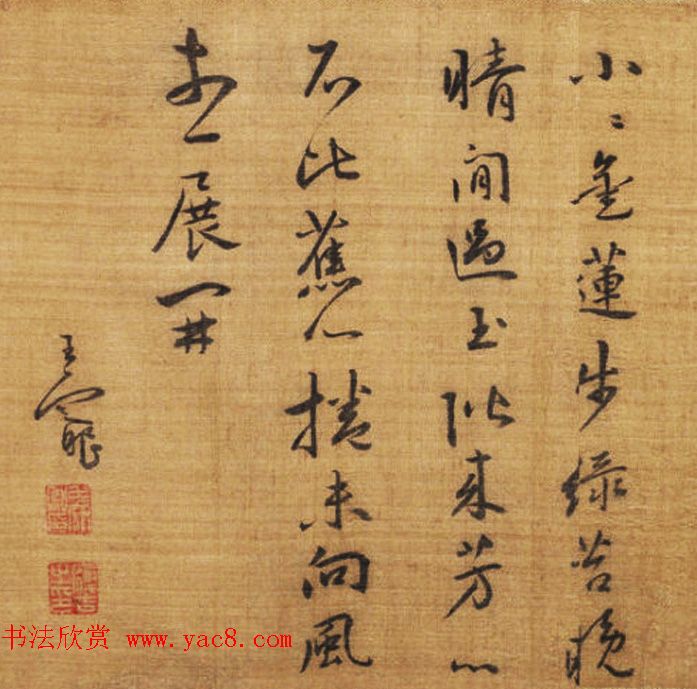 小〻金蓮步綠苔晚
晴閒過玉階來芳心
不比蕉心捲未向風
前一展開
王寵
书法欣赏 www.yac8.com